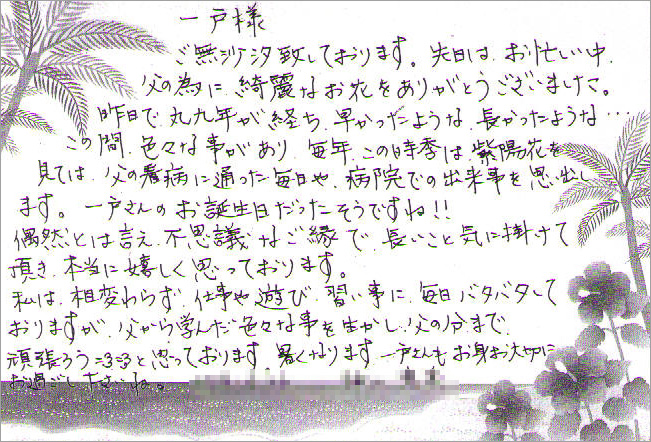 一戸様
ご無沙汰致しております。先日は、お忙しい中、
父の為に綺麗なお花をありがとうございました。
昨日で丸九年が経ち、早かったような、長かったような…
この間、色々な事があり、毎年、この時季は紫陽花を
見ては、父の看病に通った毎日や、病院での出来事を思い出し
ます。一戸さんのお誕生日だったそうですね!!
偶然とは言え、不思議なご縁で、長いこと気に掛けて
頂き、本当に嬉しく思っております。
私は、相変わらず、仕事や遊び、習い事に、毎日バタバタして
おりますが、父から学んだ色々な事を生かし、父の分まで
頑張ろうと思っております。暑くなります。一戸さんもお身お大切に
お過ごしくださいね。